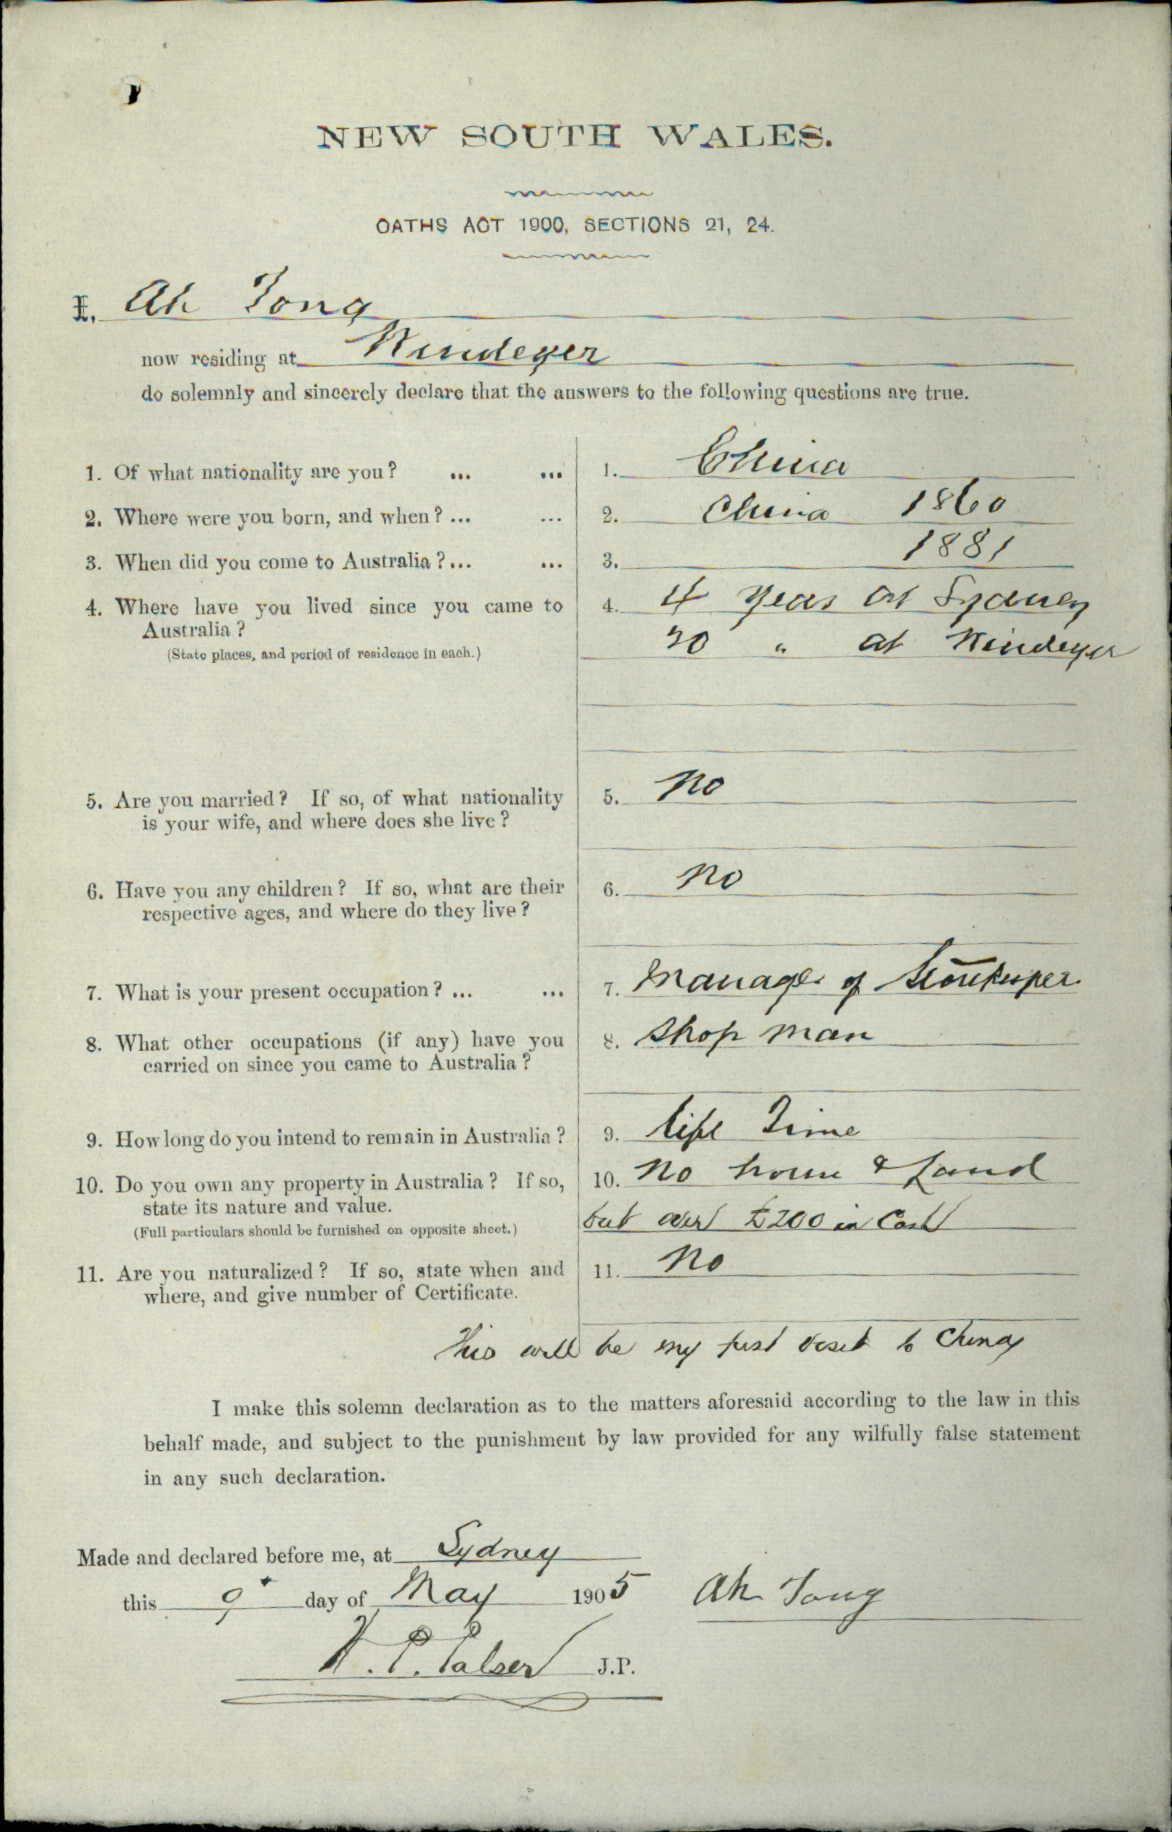 NEW SOUTH WALES.
OATHS ACT 1900, SECTIONS 21, 24.
I, Ah Tong
now residing at Windeyer
do solemnly and sincerely declare that the answers to the following questions are true.
1. Of what nationality are you? ... ... 1. China
2. Where were you born, and when? ... ... 2. China 1860
3. When did you come to Australia? ... ... 3. 1881
4. Where have you lived since you came to 4. 4 years at Sydney
Australia?
(State places, and period of residence in each.) 20 " at Windeyer
5. Are you married? If so, of what nationality 5. No
is your wife, and where does she live?
6. Have you any children? If so, what are their 6. No
respective ages, and where do they live?
7. What is your present occupation? ... ... 7. Manager of Storekeeper
8. What other occupations (if any) have you 8. Shop man
carried on since you came to Australia?
9. How long do you intend to remain in Australia? 9. life Time
10. Do you own any property in Australia? If so, 10. No house & Land
state its nature and value.
(Full particulars should be furnished on opposite sheet.) but over £200 in Cash
11. Are you naturalized? If so, state when and 11. No
where, and give number of Certificate.
This will be my first visit to China
I make this solemn declaration as to the matters aforesaid according to the law in this
behalf made, and subject to the punishment by law provided for any wilfully false statement
in any such declaration.
Made and declared before me, at Sydney
this 9 day of May 1905 Ah Tong
J.P.